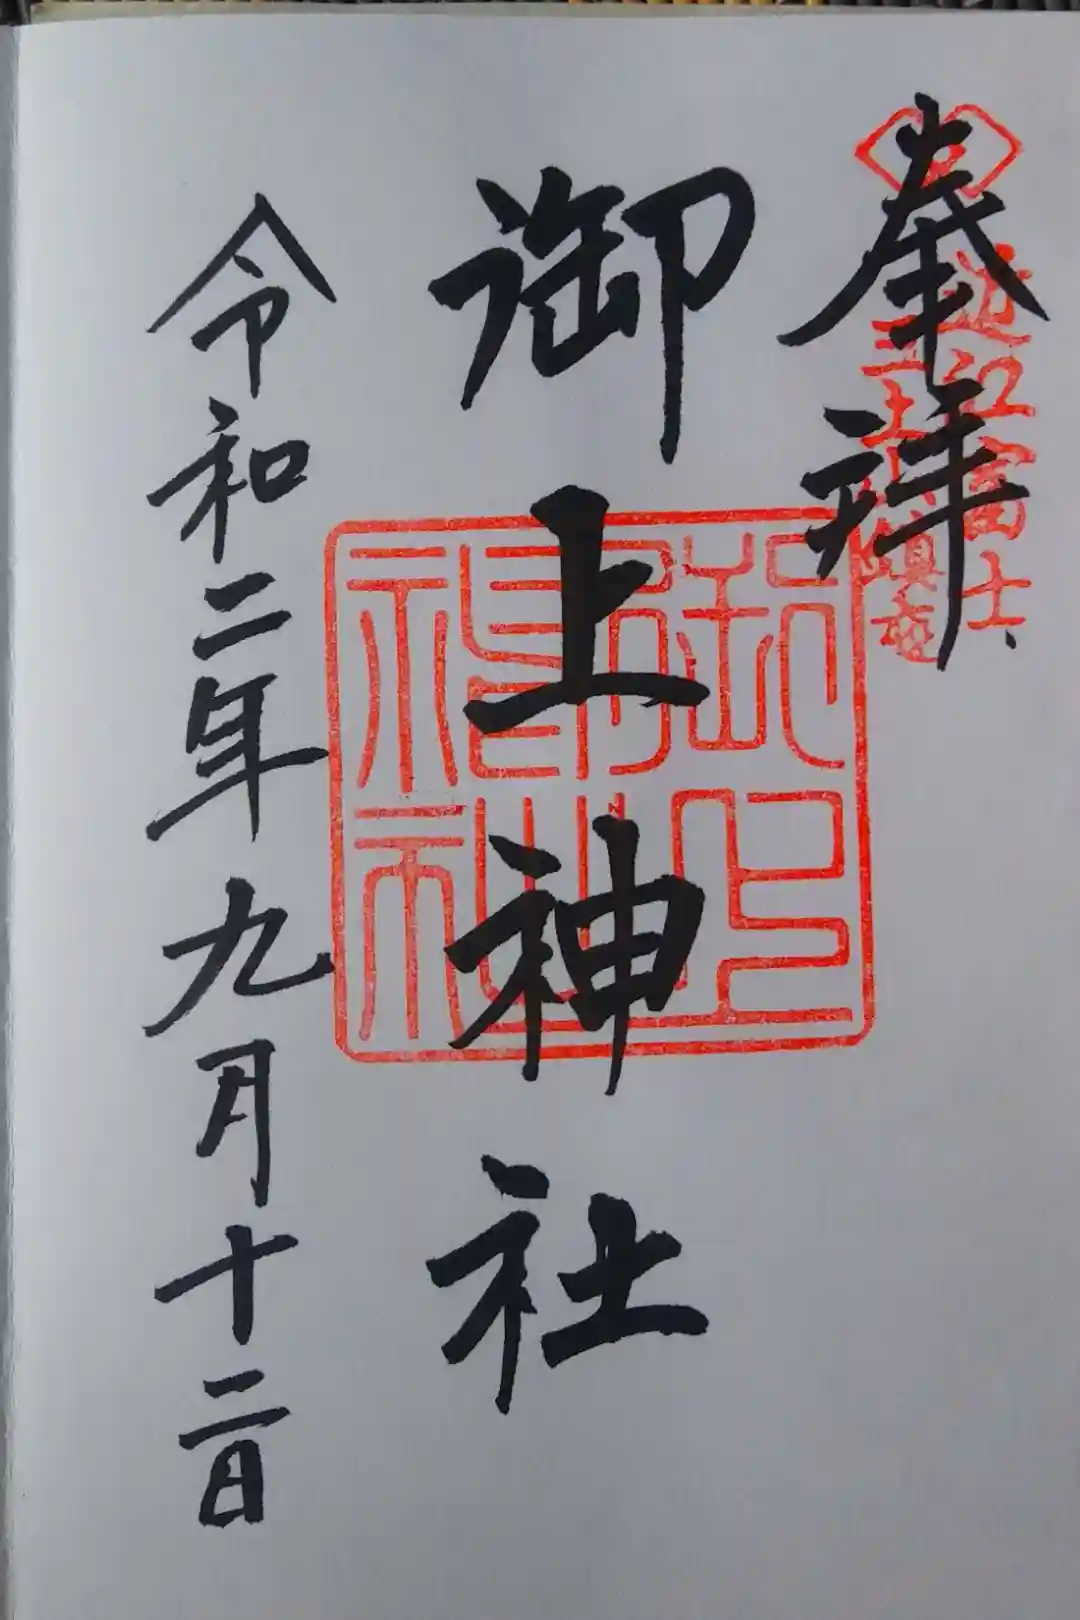 奉拝
近江富士
三上山鎮座
御上神社
御上
神社
令和二年九月十二日